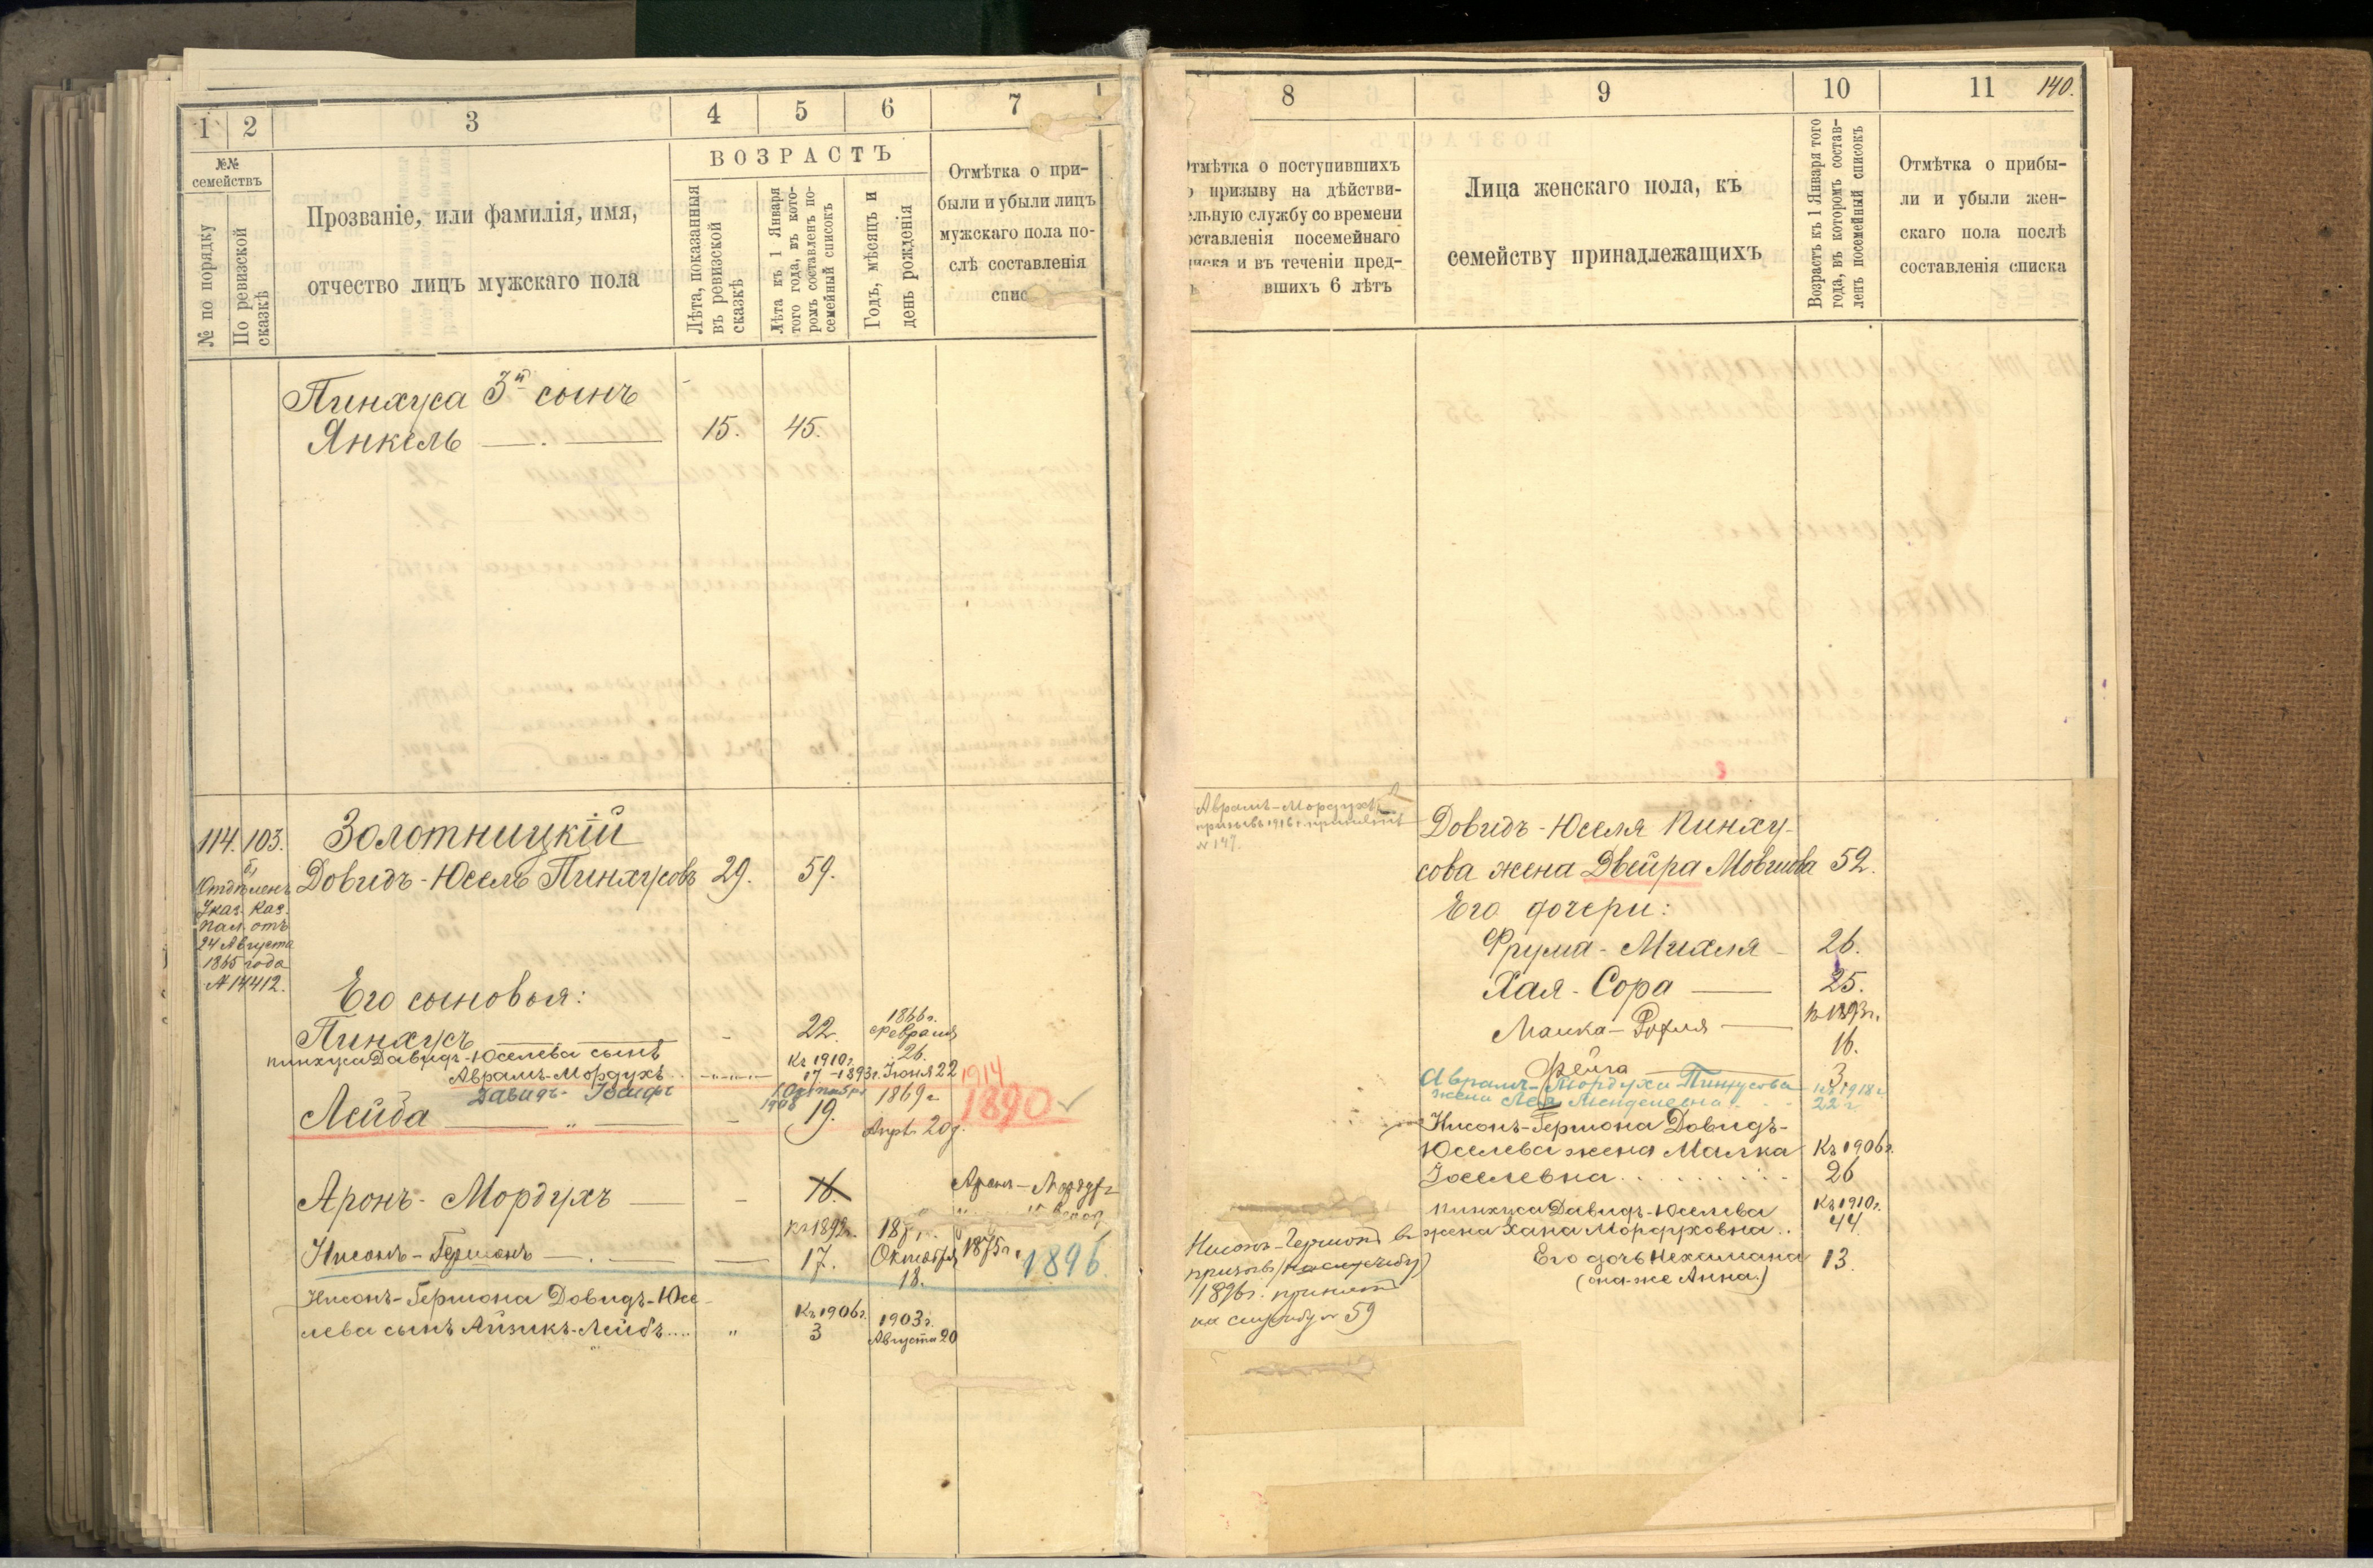 1
2
3
4
5
6
7
№№
семействъ
№ по порядку
По ревизской
сказкѣ
Прозваніе, или фамилія, имя,
отчество лицъ мужскаго пола
ВОЗРАСТЪ
Лѣта, показанныя
въ ревизской
сказкѣ
Лѣта къ 1 Января
того года, въ кото-
ромъ составленъ по-
семейный списокъ
Годъ, мѣсяцъ и
день рожденія
Отмѣтка о при-
были и убыли лицъ
мужскаго пола по-
слѣ составленія
спис
Пинхуса 3й сынъ
Янкель 15. 45.
114. 103. Золотницкій
б)
Довидъ-Юсель Пинхусовъ 29. 59.
Отдѣленъ
Указ. Каз.
Пал. отъ
24 Августа
1865 года
№ 14412.
Его сыновья:
Пинхусъ - 22. 1866 г.
Февраля
26.
Пинхуса Давидъ-Юселева сынъ
Аврамъ-Мордухъ Къ 1910 г.
17 - 1893 г. Іюня 22 1914
Давидъ-
1908
Лейба " - 19. 1869 г.
Апр. 20 д. 1890
Аронъ-Мордухъ - 16. Аронъ-Мордух
Къ 1892 г.
Нисонъ-Гершонъ 17. Октября
18. 1875 г. 1896
Нисонъ-Гершона Довидъ-Юсе-
лева сынъ Айзикъ-Лейбъ.... " Къ 1906 г.
3 1903 г.
Августа 20
8
9
10
11
140.
Отмѣтка о поступившихъ
о призыву на дѣйстви-
ельную службу со времени
оставленія посемейнаго
писка и въ теченіи пред-
вшихъ 6 лѣтъ
Лица женскаго пола, къ
семейству принадлежащихъ
Возрастъ къ 1 Января того
года, въ которомъ состав-
ленъ посемейный списокъ
Отмѣтка о прибы-
ли и убыли жен-
скаго пола послѣ
составленія списка
Аврамъ-Мордухъ
призывъ 1916 г.
№ 147.
Довидъ-Юселя Пинху-
сова жена Двейра Мовшова 52.
Его дочери:
Фрума-Михля - 26.
Хая-Сора 25.
Къ 1893 г.
Малка-Рохля 16.
Фейга 3.
Аврамъ-Мордуха Пинхусова
жена Лея Менделевна . . . къ 1918 г.
22 г.
Нисонъ-Гершона Довидъ-
Юселева жена Малка Къ 1906 г.
Іоселевна . . . . . . . . . 26
Пинхуса Давидъ-Юселева Къ 1910 г.
жена Хана Мордуховна . . 44.
Его дочь Нехамана 13.
(она-же Анна.)
Нисонъ-Гершонъ въ
призывъ
1896 г. принятъ
на службу № 59